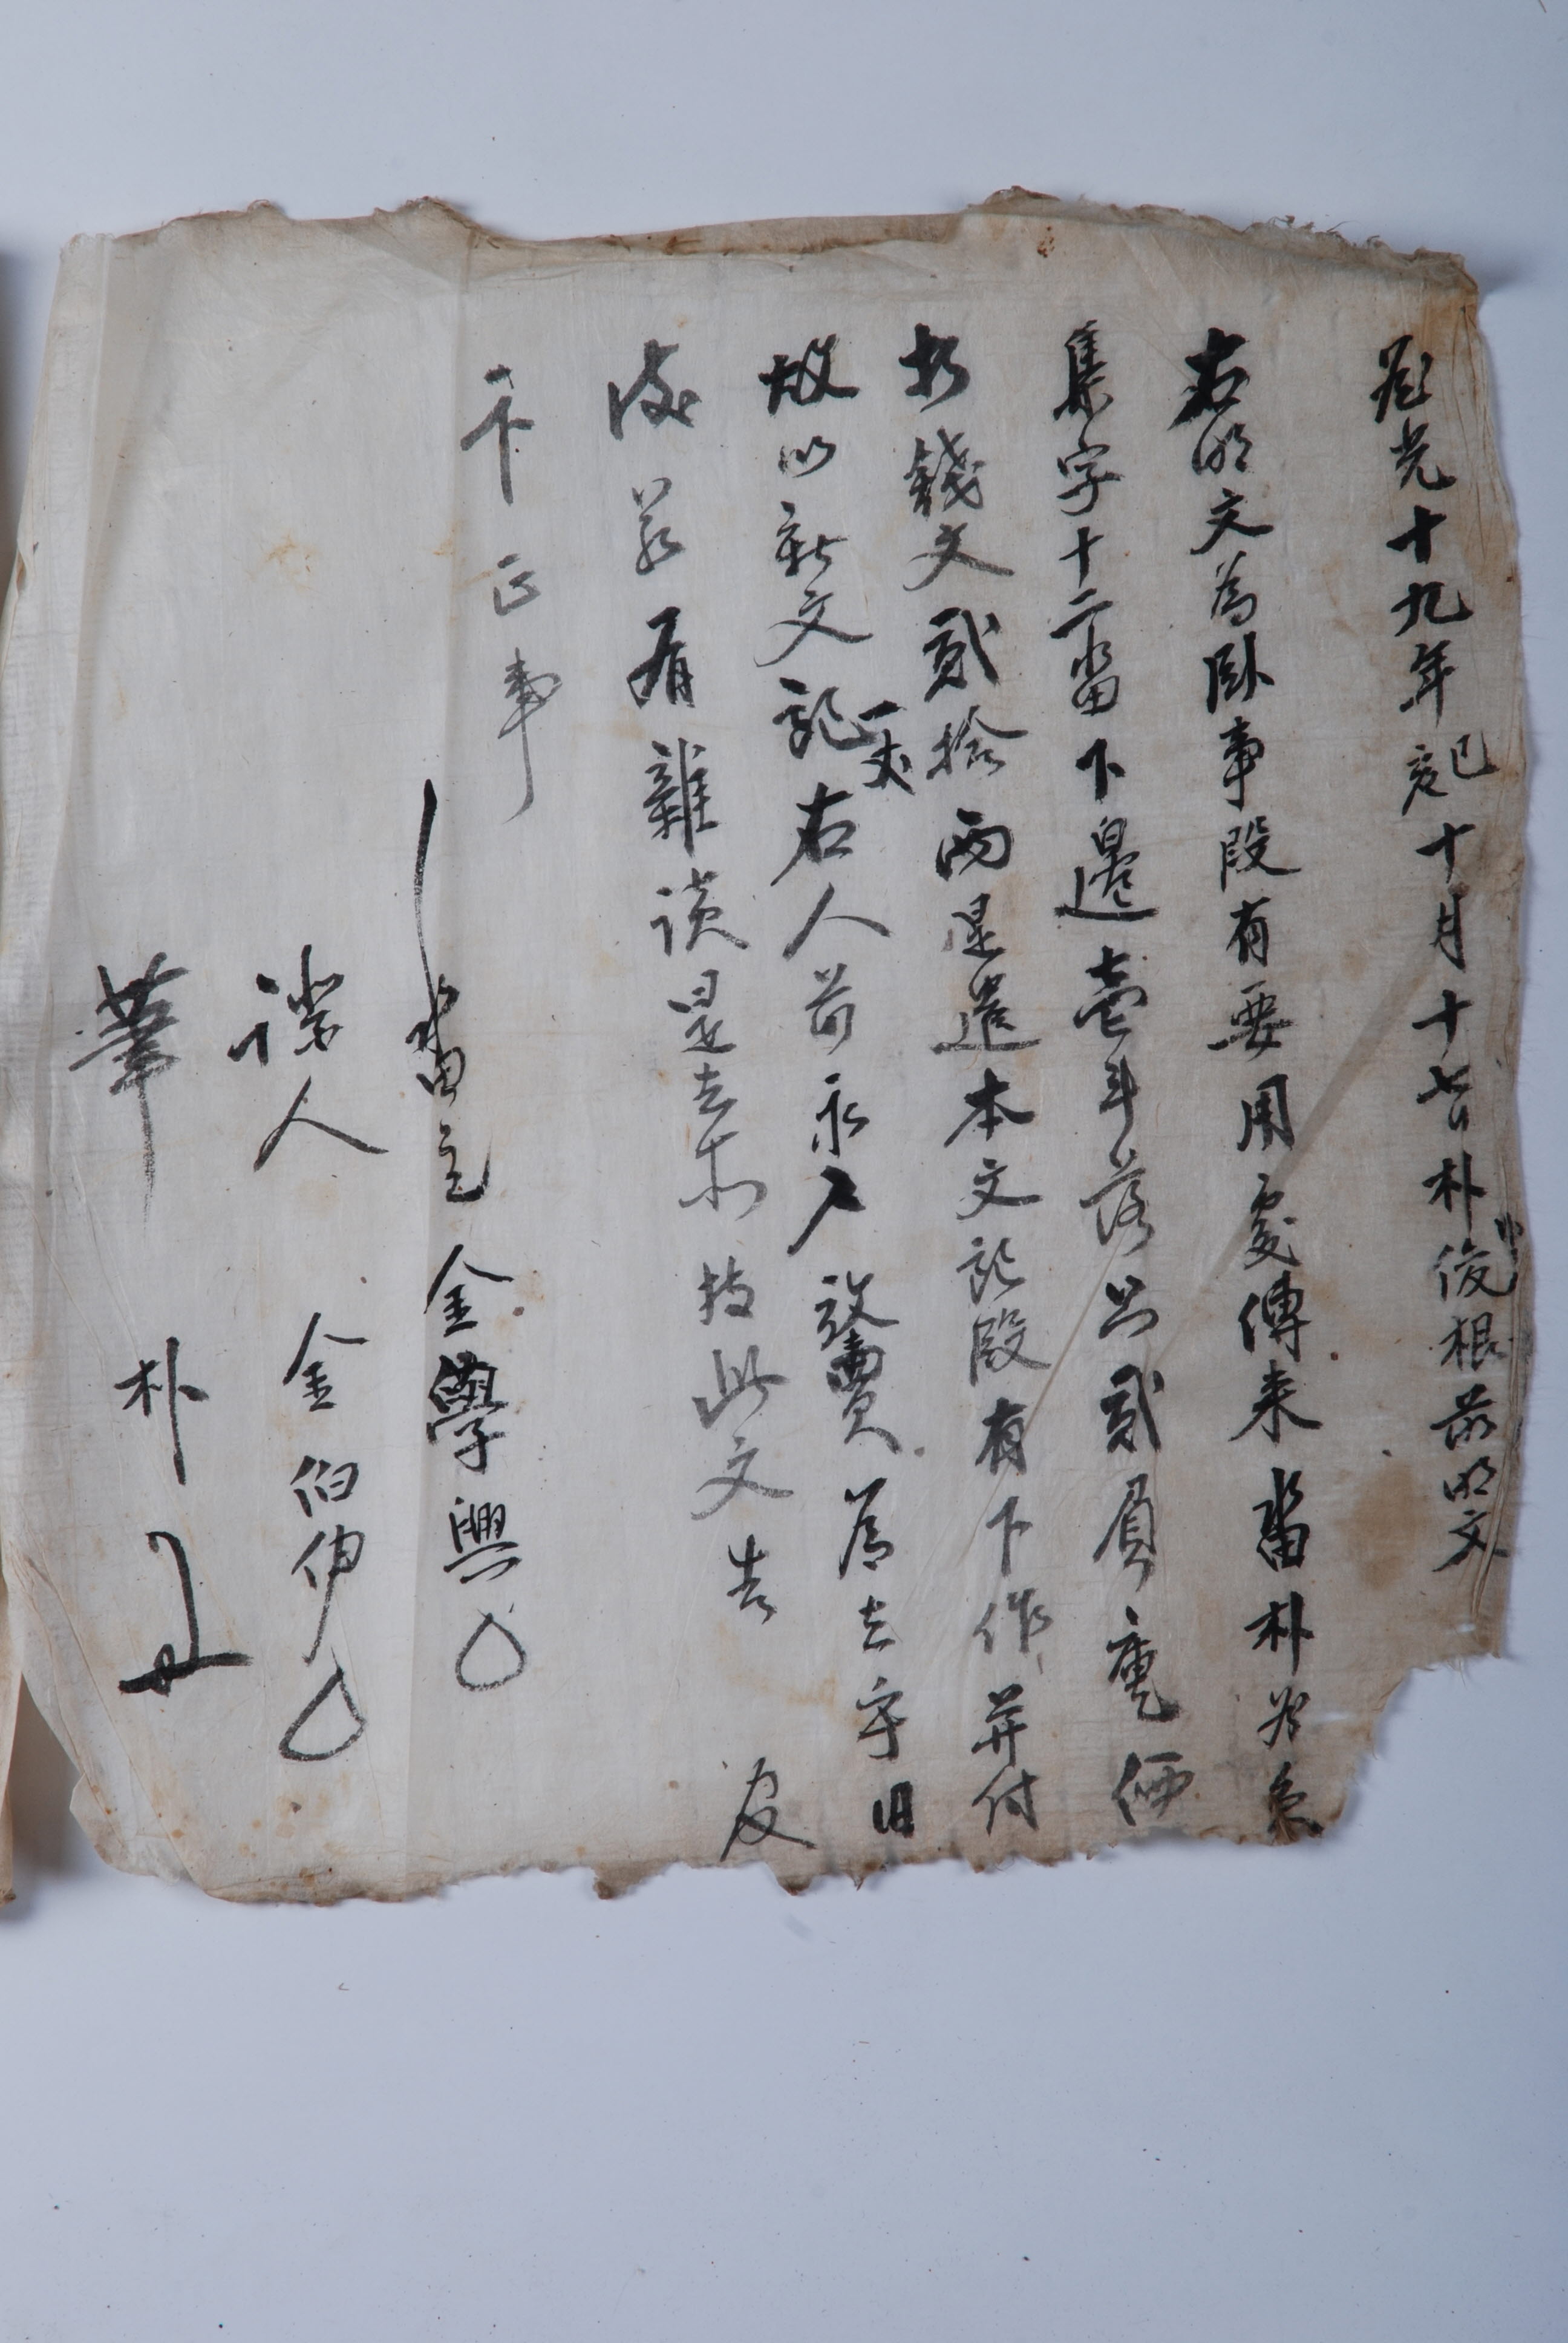 道光十九年己亥十月十七日朴俊根前明文
右明文為臥事段有要用處傳来畓朴谷員
集字十二畓下邊壹斗落只貳負庫価
折錢文貳拾両是遣本文記段有下作并付
故以新文記一丈右人前永永放賣為去乎日
後若有雜談是去木持此文告官
卞正事
畓主 金學興
證人 金伯伊
筆 朴